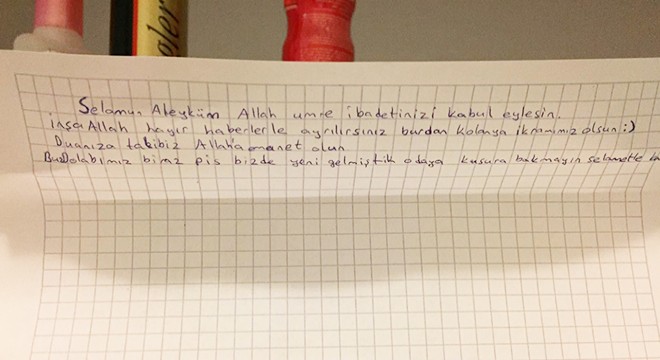 gler
Selamun Aleyküm Allah umre ibadetinizi kabul eylesin.
inşa Allah hayır haberlerle ayrılırsınız burdan Kolonya ikramımız olsun :)
Duanıza talibiz Allaha emanet olun
BuzDolabımız biraz pis bizde yeni gelmiştik odaya kusura bakmayın selametle